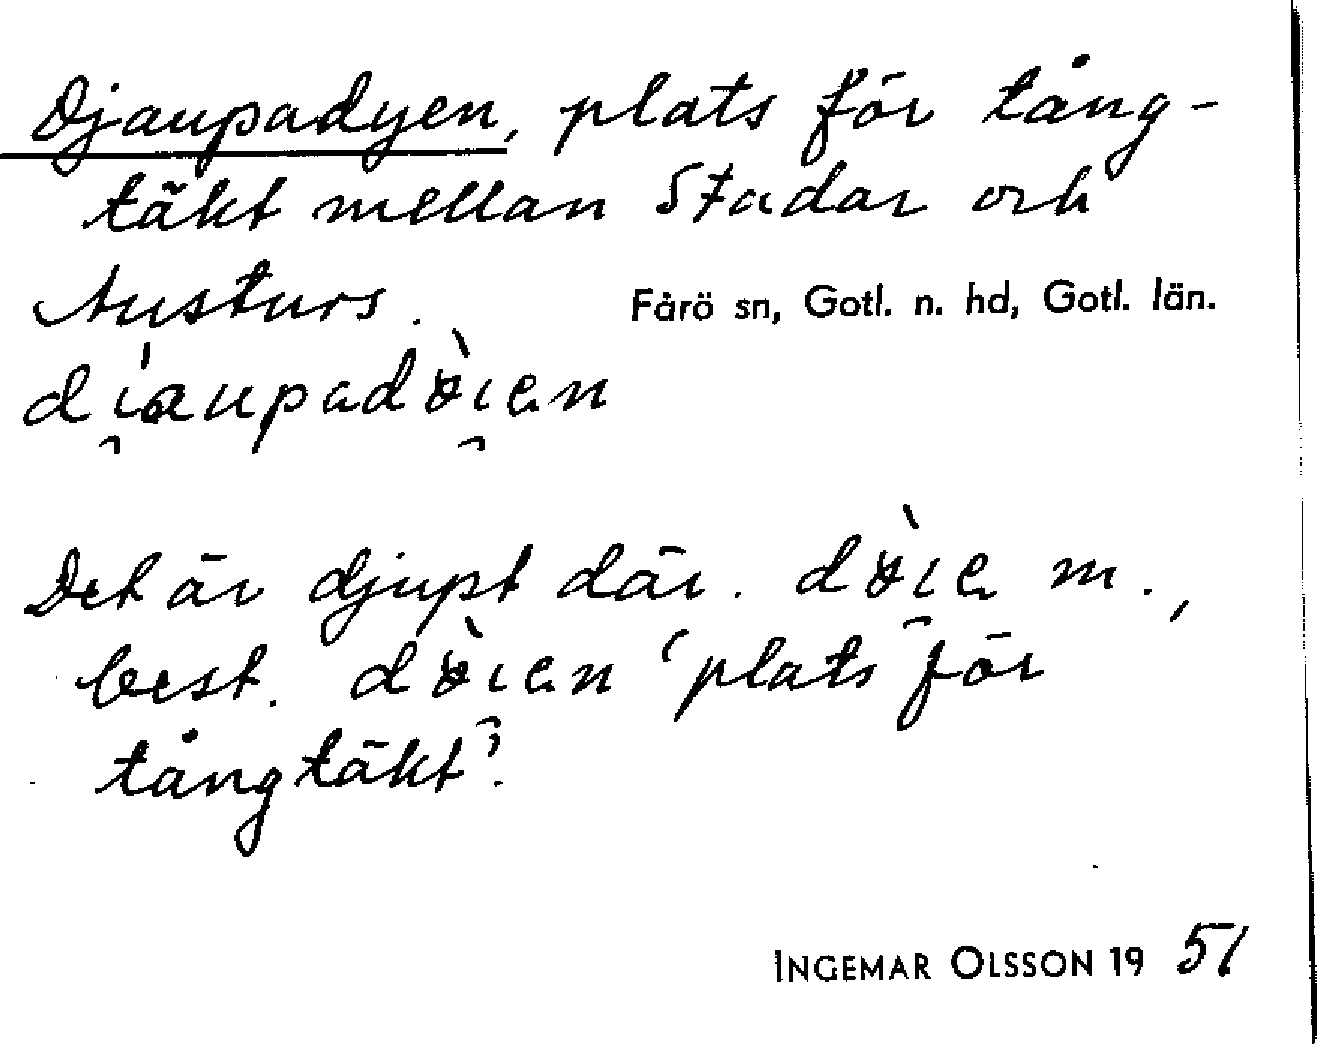 Djaupadyen, plats för tång-
täkt mellan Stadar och
Austurs.
Fårö sn, Gotl. n. hd, Gotl. län.
Det är djupt där. m.,
best. 'plats för
tångtäkt'.
INGEMAR OLSSON 19 51